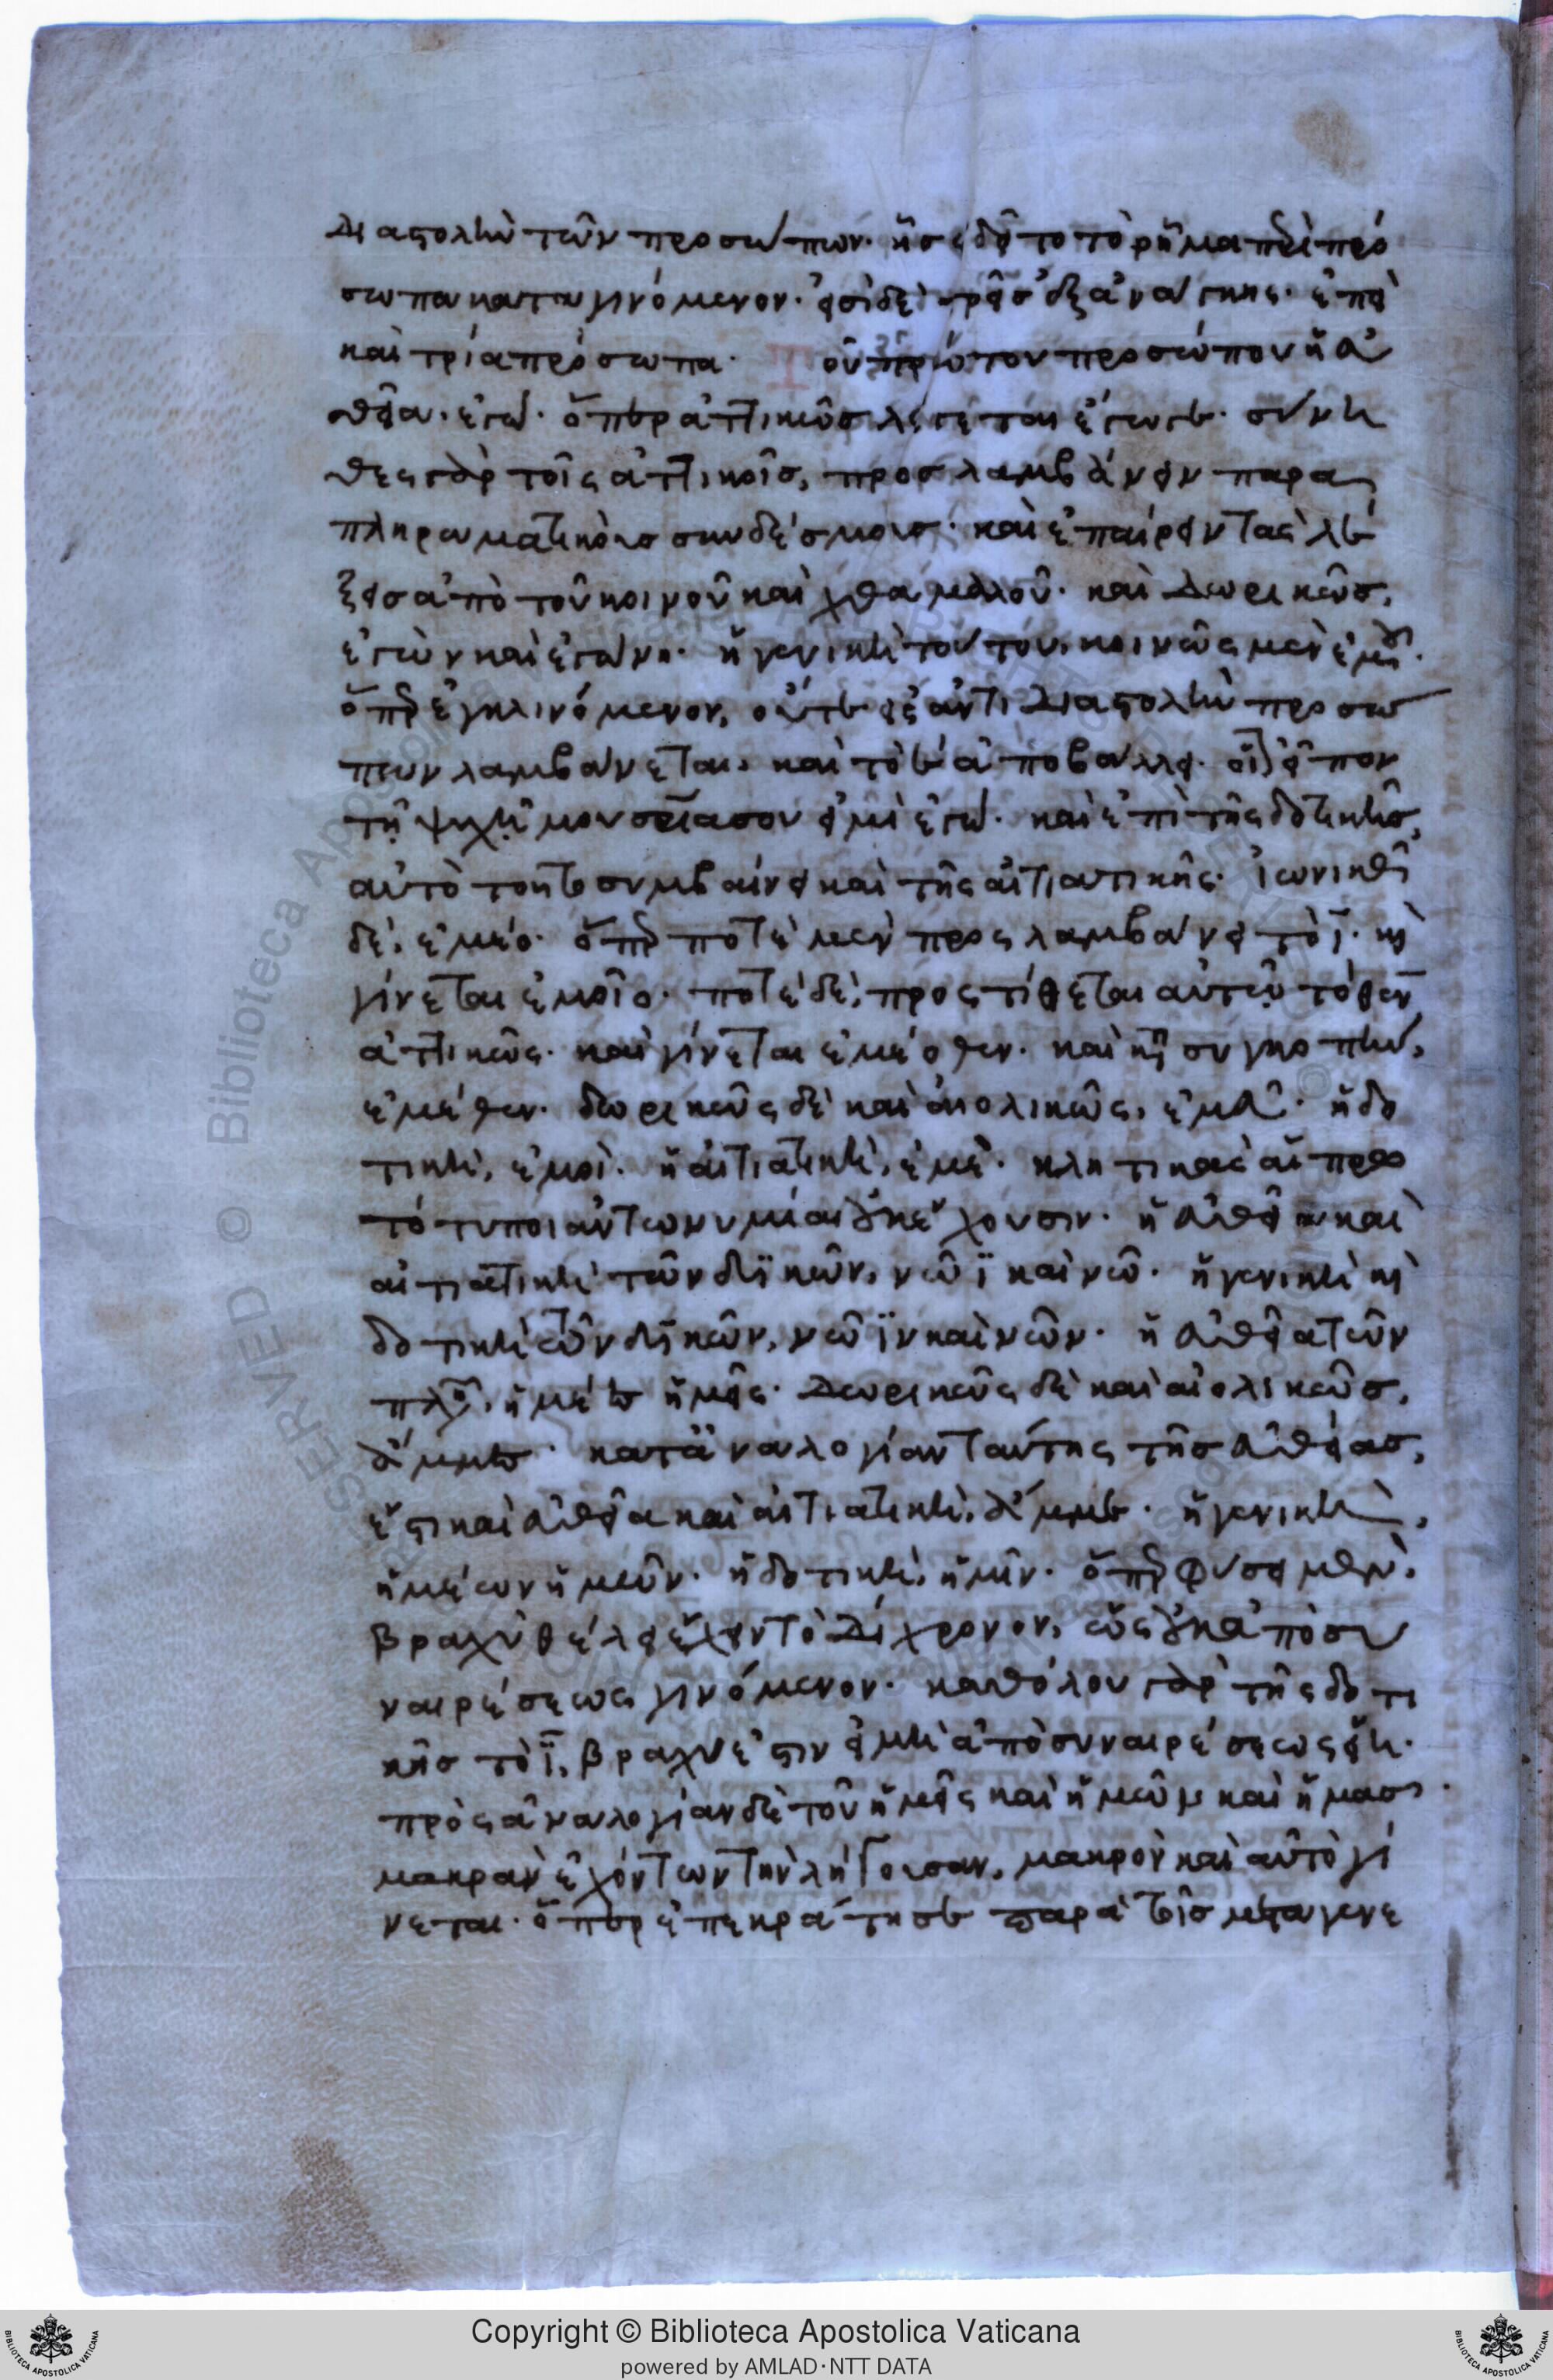 διαστολὴν τῶν προσώπων· ἧς ἐδεῖτο τὸ ῥῆμα περὶ πρό
σωπα καταγινόμενον· εἰσὶ δὲ τρεῖς ἐξ ἀνάγκης· ἐπεὶ
καὶ τρία πρόσωπα· Τοῦ πρώτου προσώπου ἡ εὐ
θεῖα· ἐγώ· ὅπερ ἀττικῶς λέγεται ἔγωγε· σύνη
θες γὰρ τοῖς ἀττικοῖς, προσλαμβάνειν παρα
πληρωματικοῖς συνδέσμοις· καὶ ἐπαίρειν τὰς λέ
ξεις ἀπὸ τοῦ κοινοῦ καὶ χθαμαλοῦ· καὶ δωρικῶς,
ἐγὼν καὶ ἐγώνη· ἡ γενικὴ τούτου, κοινῶς μὲν ἐμοῦ·
ὅπερ ἐγκλινόμενον, οὔτε εἰς ἀντιδιαστολὴν προσώ
πων λαμβάνεται, καὶ τὸ ε ἀποβάλλει· οἷον εἶπον
τῇ ψυχῇ μου σωτηρία σου εἰμὶ ἐγώ· καὶ ἐπὶ τῆς δοτικῆς,
αὐτὸ τοῦτο συμβαίνει καὶ τῆς αἰτιατικῆς· ἰωνικὴ
δέ, ἐμέο· ὅπερ ποτὲ μὲν προσλαμβάνει τὸ ϊ· καὶ
γίνεται ἐμοῖο· ποτὲ δέ, προστίθεται αὐτῷ τὸ θεν
ἀττικῶς· καὶ γίνεται ἐμέοθεν· καὶ κατὰ συγκοπήν,
ἐμέθεν· δωρικῶς δὲ καὶ αἰολικῶς, ἐμεῦ· ἡ δο
τική, ἐμοί· ἡ αἰτιατική, ἐμέ· κλητικὰς αἱ πρω
τότυποι ἀντωνυμίαι οὐκ ἔχουσιν· ἡ εὐθεῖα καὶ
αἰτιατικὴ τῶν δυϊκῶν, νῶϊ καὶ νώ· ἡ γενικὴ καὶ
δοτικὴ τῶν δυϊκῶν, νῶϊν καὶ νῶν· ἡ εὐθεῖα τῶν
πληθυντικῶν, ἡμέες ἡμεῖς· δωρικῶς δὲ καὶ αἰολικῶς,
ἄμμες· κατὰ ἀναλογίαν ταύτης τῆς εὐθείας,
ἔστι καὶ εὐθεῖα καὶ αἰτιατική, ἄμμε· ἡ γενικὴ,
ἡμέων ἡμῶν· ἡ δοτική, ἡμῖν· ὅπερ φύσει μὲν,
βραχὺ θέλει ἔχειν τὸ δίχρονον, ὡς οὐκ ἀπὸ συ
ναιρέσεως γινόμενον· καθόλου γὰρ τῆς δοτι
κῆς τὸ ϊ, βραχύ ἐστιν εἰ μὴ ἀπὸ συναιρέσεως εἴη·
πρὸς ἀναλογίαν δὲ τοῦ ἡμεῖς καὶ ἡμῶν καὶ ἡμᾶς·
μακρὰν ἐχόντων τὴν λήγουσαν, μακρὸν καὶ αὐτὸ γί
νεται· ὅπερ ἐπεκράτησε παρὰ τοῖς μεταγενε